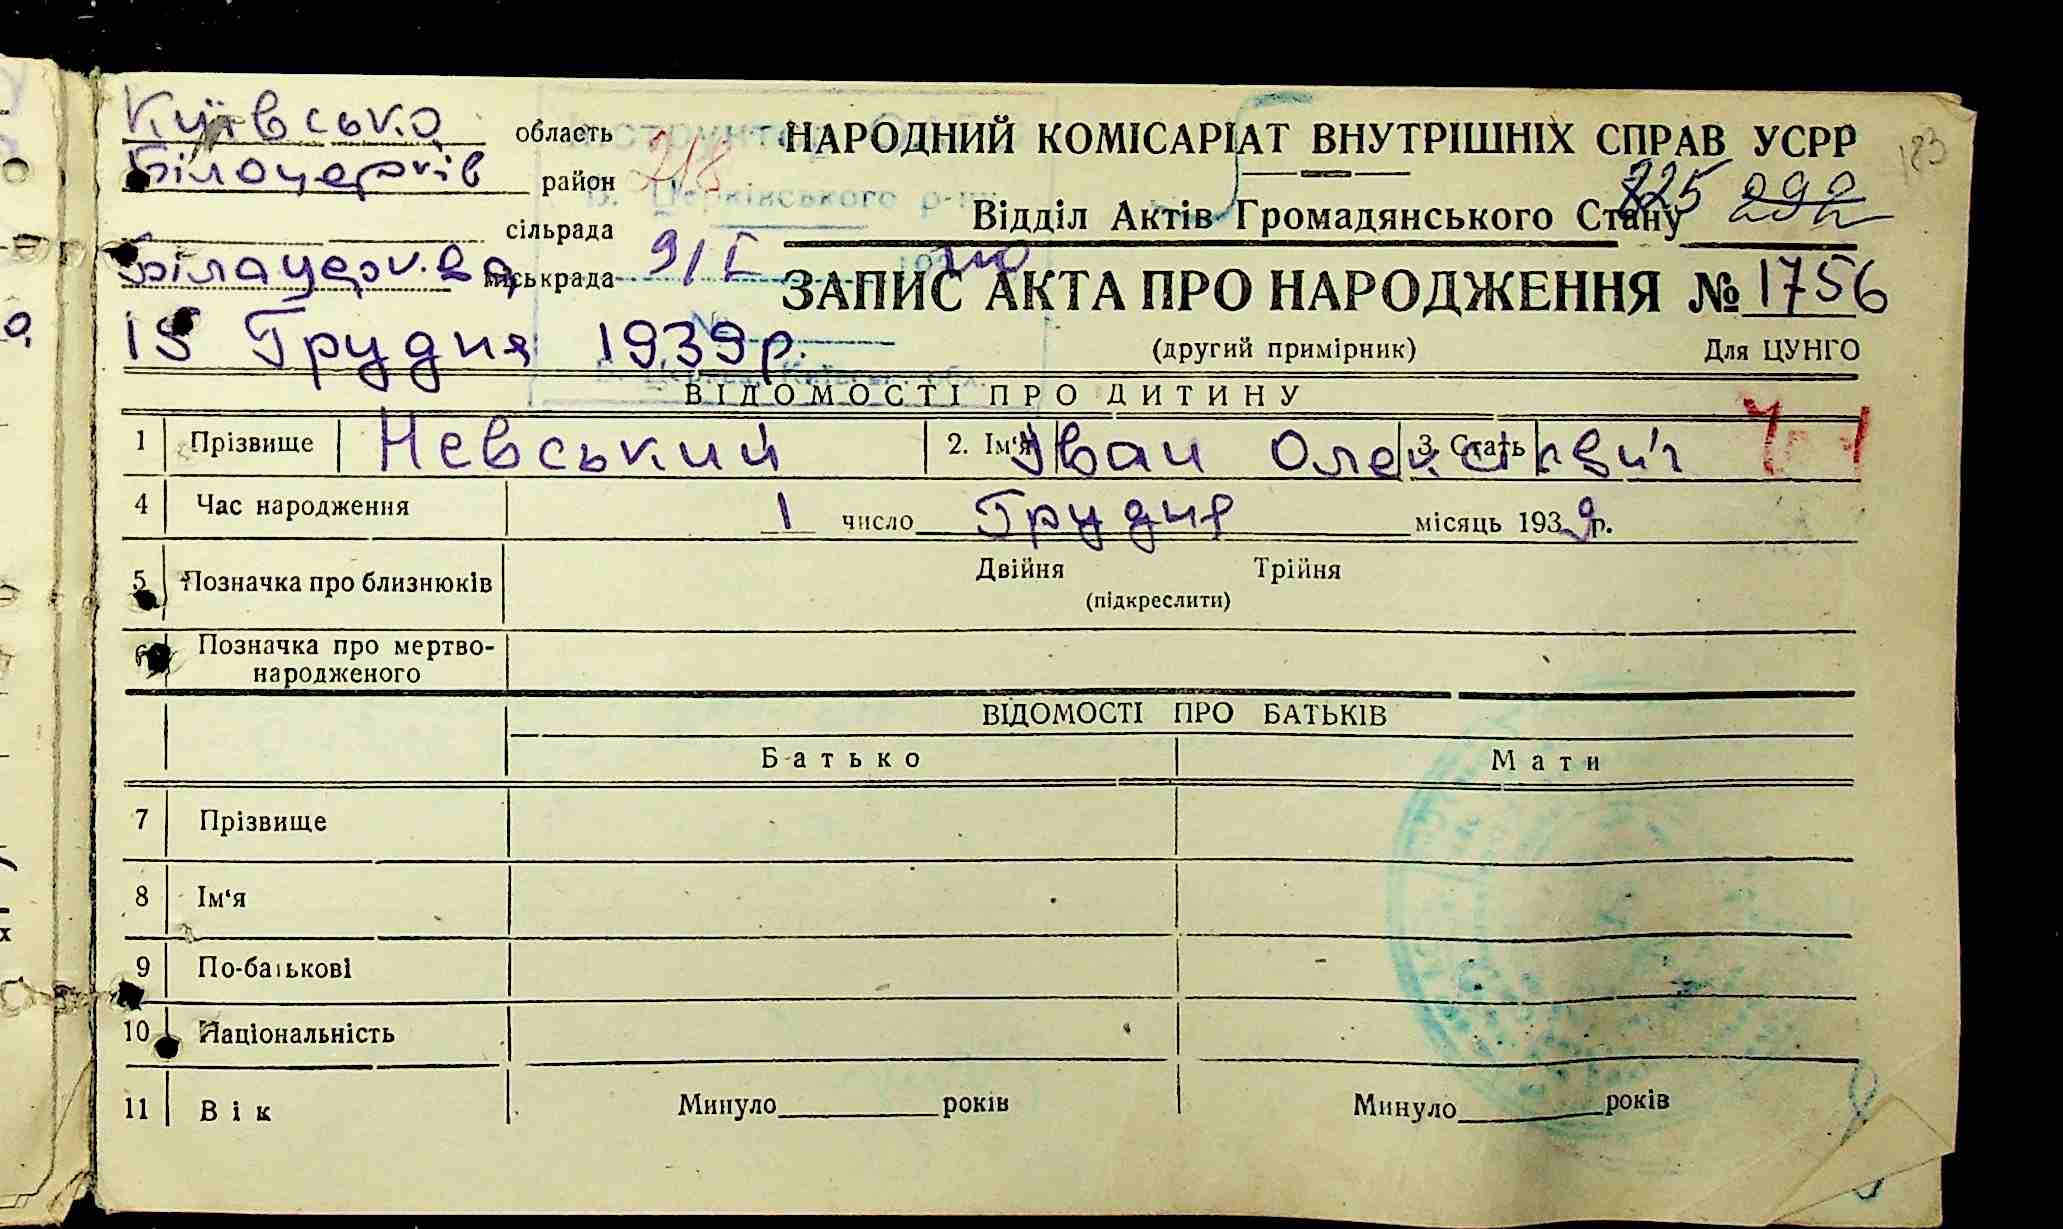 Київська область
НАРОДНИЙ КОМІСАРІАТ ВНУТРІШНІХ СПРАВ УСРР
183
Білоцерків район
218
225 292
Церківського р-ну
Відділ Актів Громадянського Стану
сільрада
Білацерк.ва міськрада
9/I
ЗАПИС АКТА ПРО НАРОДЖЕННЯ № 1756
15 Грудня 1939 р.
(другий примірник) Для ЦУНГО
ВІДОМОСТІ ПРО ДИТИНУ
1 Прізвище Невський 2. Ім'я Іван Олексієвич 3. Стать
4 Час народження 1 число Грудня місяць 1939 р.
5 Позначка про близнюків Двійня Трійня
(підкреслити)
6 Позначка про мертво-
народженого
ВІДОМОСТІ ПРО БАТЬКІВ
Батько Мати
7 Прізвище
8 Ім'я
9 По-батькові
10 Національність
11 Вік Минуло років Минуло років